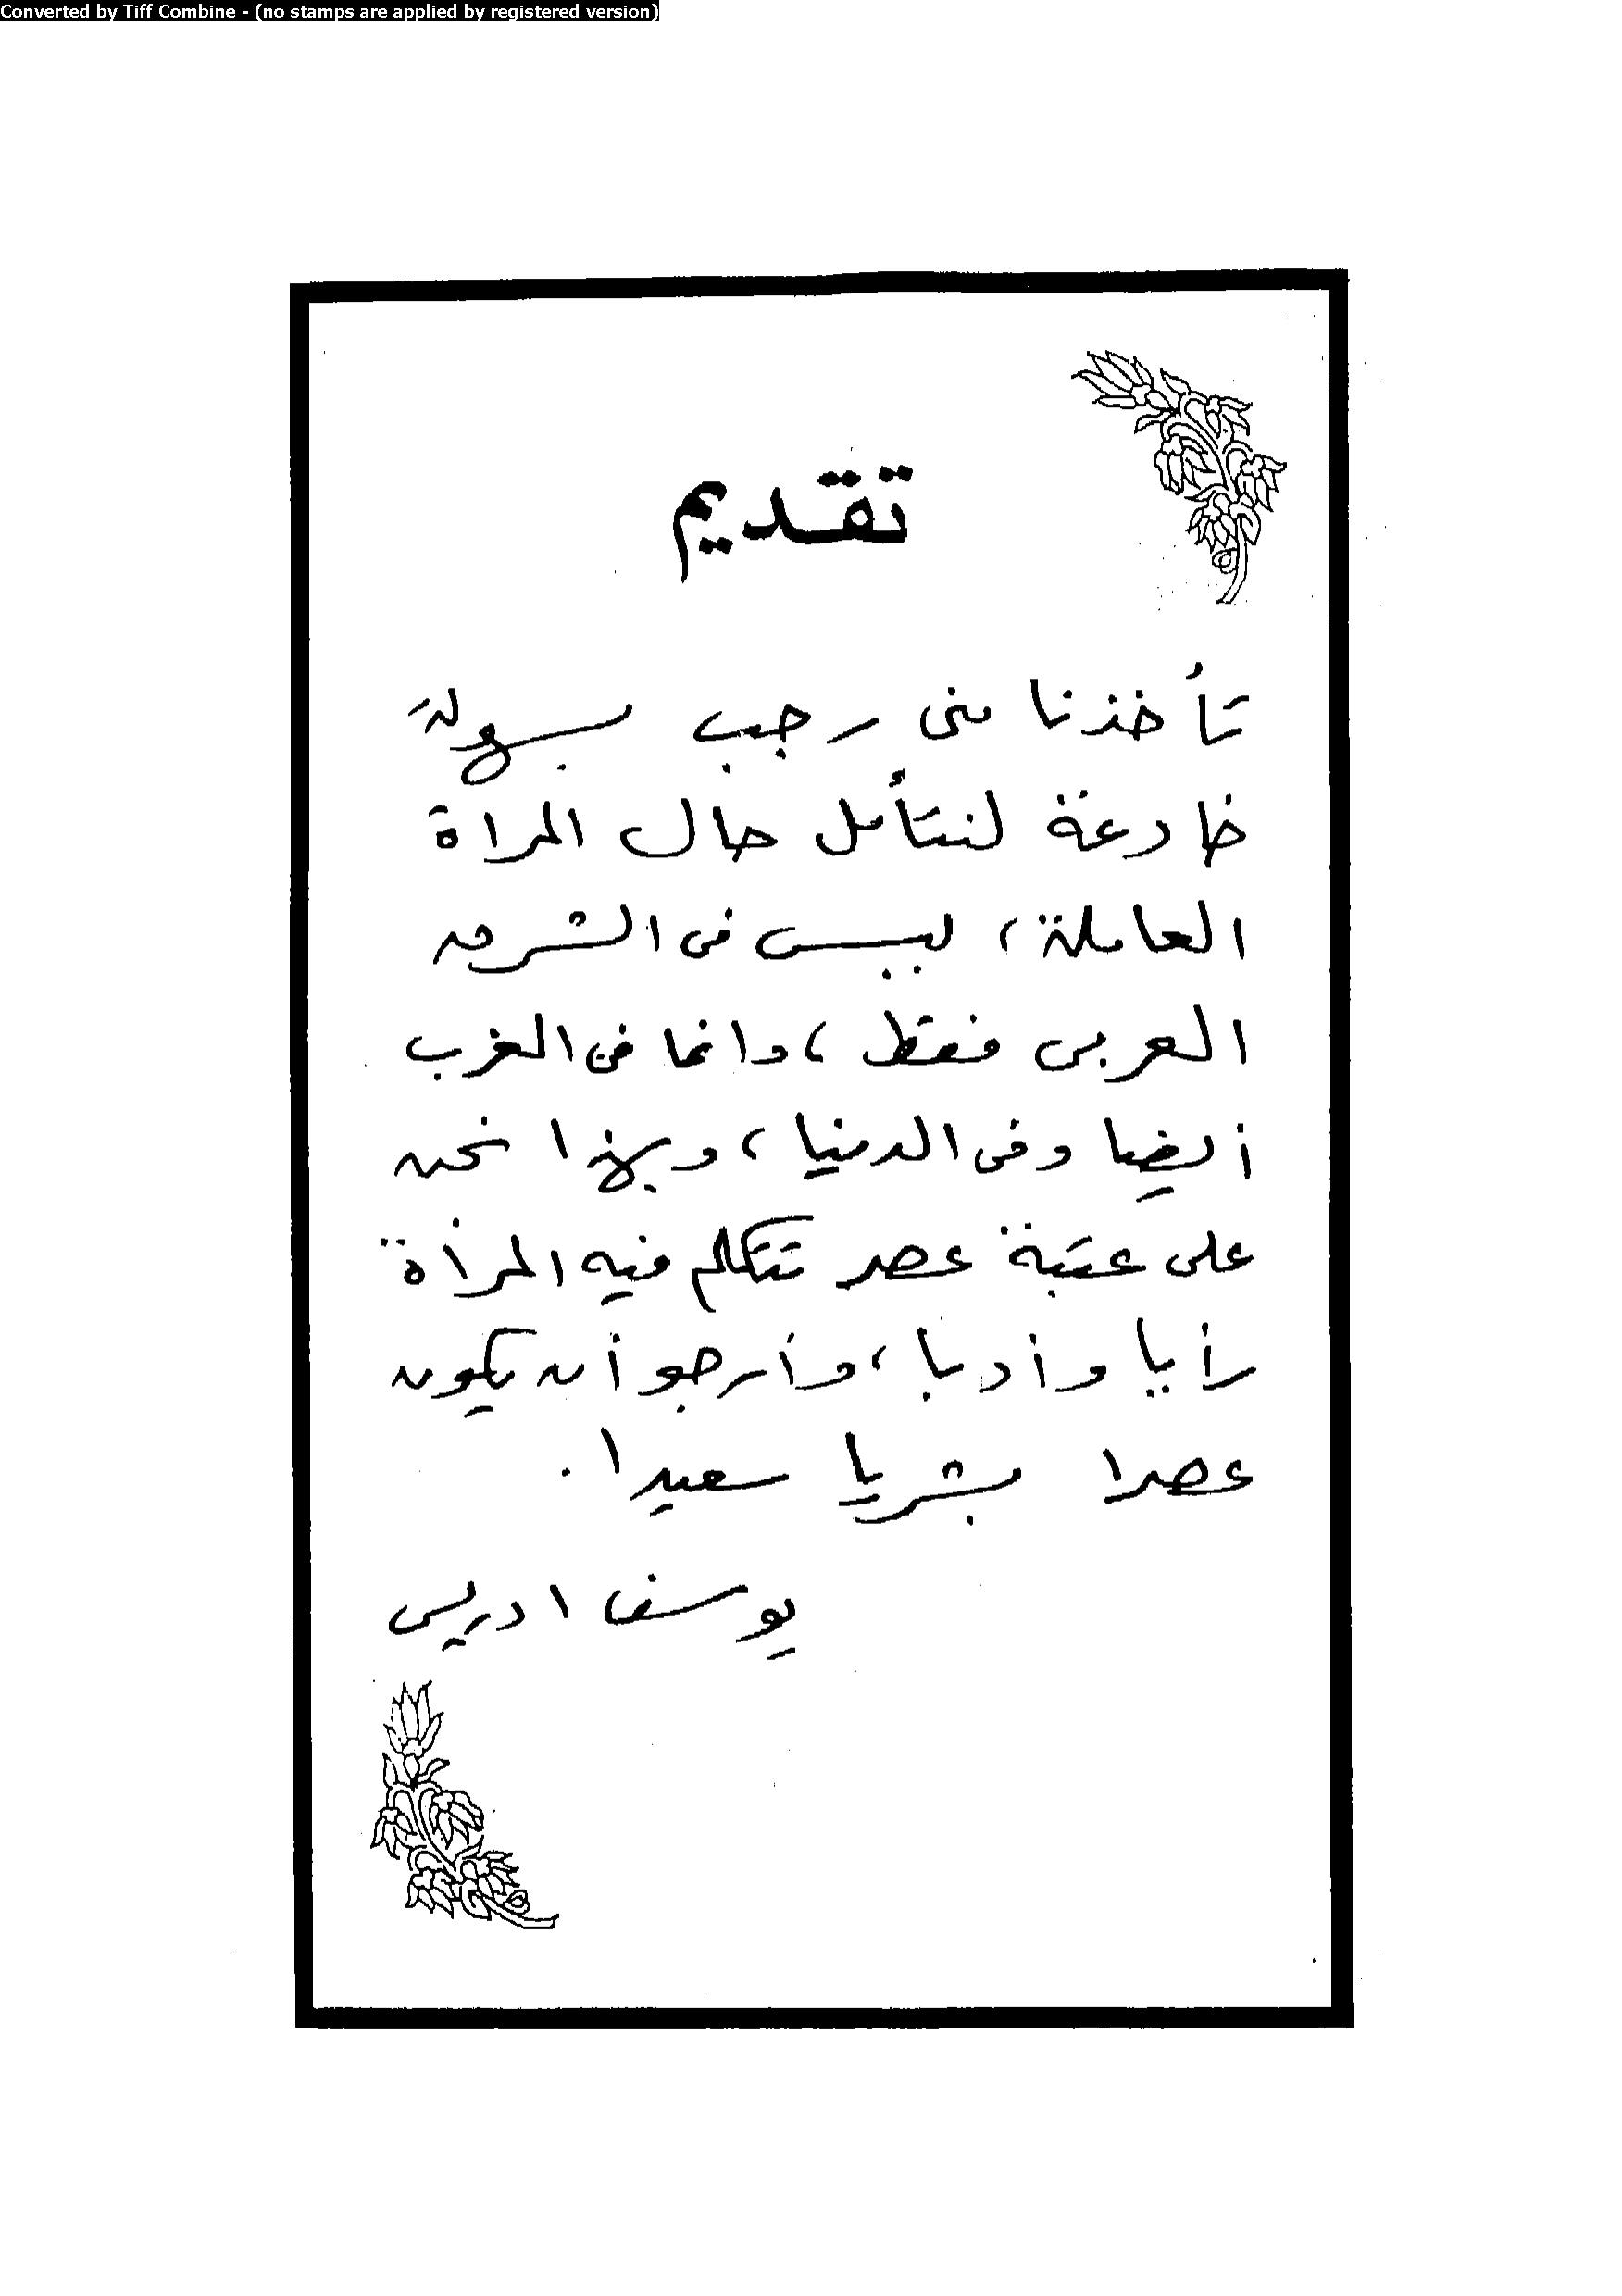 Converted by Tiff Combine - (no stamps are applied by registered version)
تقديم
تأخذنا منى رجب بسهولة
خادعة لنتأمل حال المراة
العاملة، ليس فى الشرق
العربى فقط، وانما فى الغرب
أيضا وفى الدنيا، وبهذا نحن
على عتبة عصر تتكلم فيه المرأة
رأيا وأدبا، وأرجو أن يكون
عصرا بشريا سعيدا.
يوسف ادريس